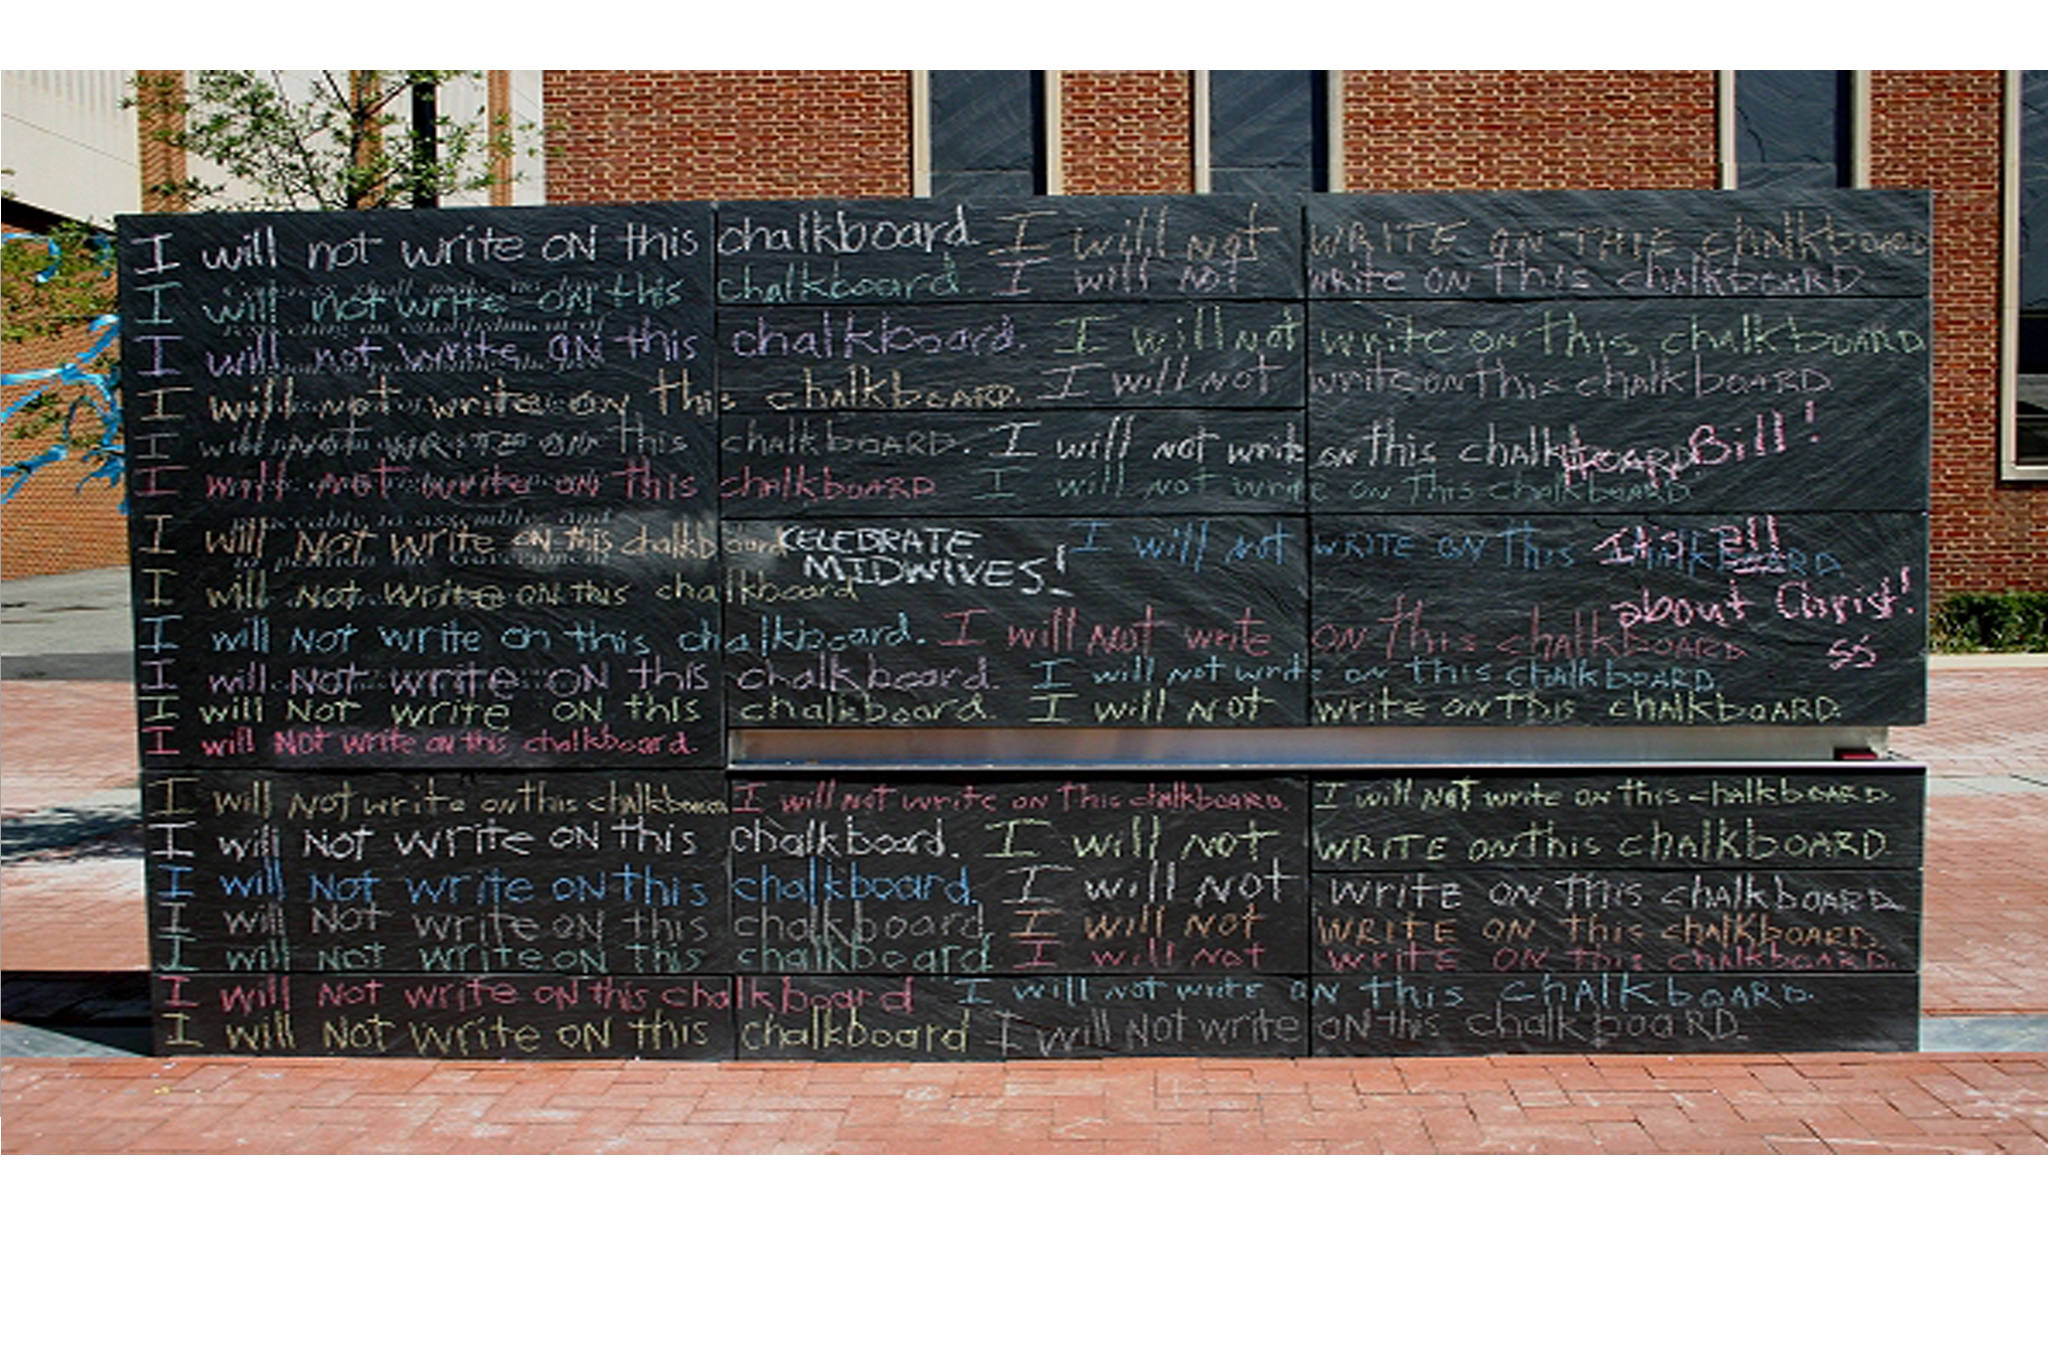 I will not write on this chalkboard. I will not WRITE ON THIS chalkboard
I will not write on this chalkboard. I will not write on this chalkboard
I will not write on this chalkboard. I will not write on this chalkboard
I will not write on this chalkboard. I will not write on this chalkboard.
I will not WRITE on this chalkboard. I will not write on this chalkboard Bill!
I will not write on this chalkboard I will not write on this chalkboard.
I will Not write on this chalkboard CELEBRATE I will not WRITE ON this chalkboard. It's all
MIDWIVES!
I will Not Write on this chalkboard about Christ!
I will Not write on this chalkboard. I will Not write on this chalkboard
I will Not write on this chalkboard. I will not write on this chalkboard
I will Not write on this chalkboard. I will Not write on this chalkboard.
I will Not write on this chalkboard.
I will Not write on this chalkboard I will not write on this chalkboard. I will Not write on this chalkboard.
I will Not write on this chalkboard. I will not WRITE on this chalkboard.
I will Not write on this chalkboard. I will Not write on this chalkboard
I will Not write on this chalkboard. I will Not WRITE ON this chalkboard.
I will Not write on this chalkboard. I will not write on this chalkboard.
I will Not write on this chalkboard I will not write on this chalkboard.
I will Not write on this chalkboard I will Not write on this chalkboard.